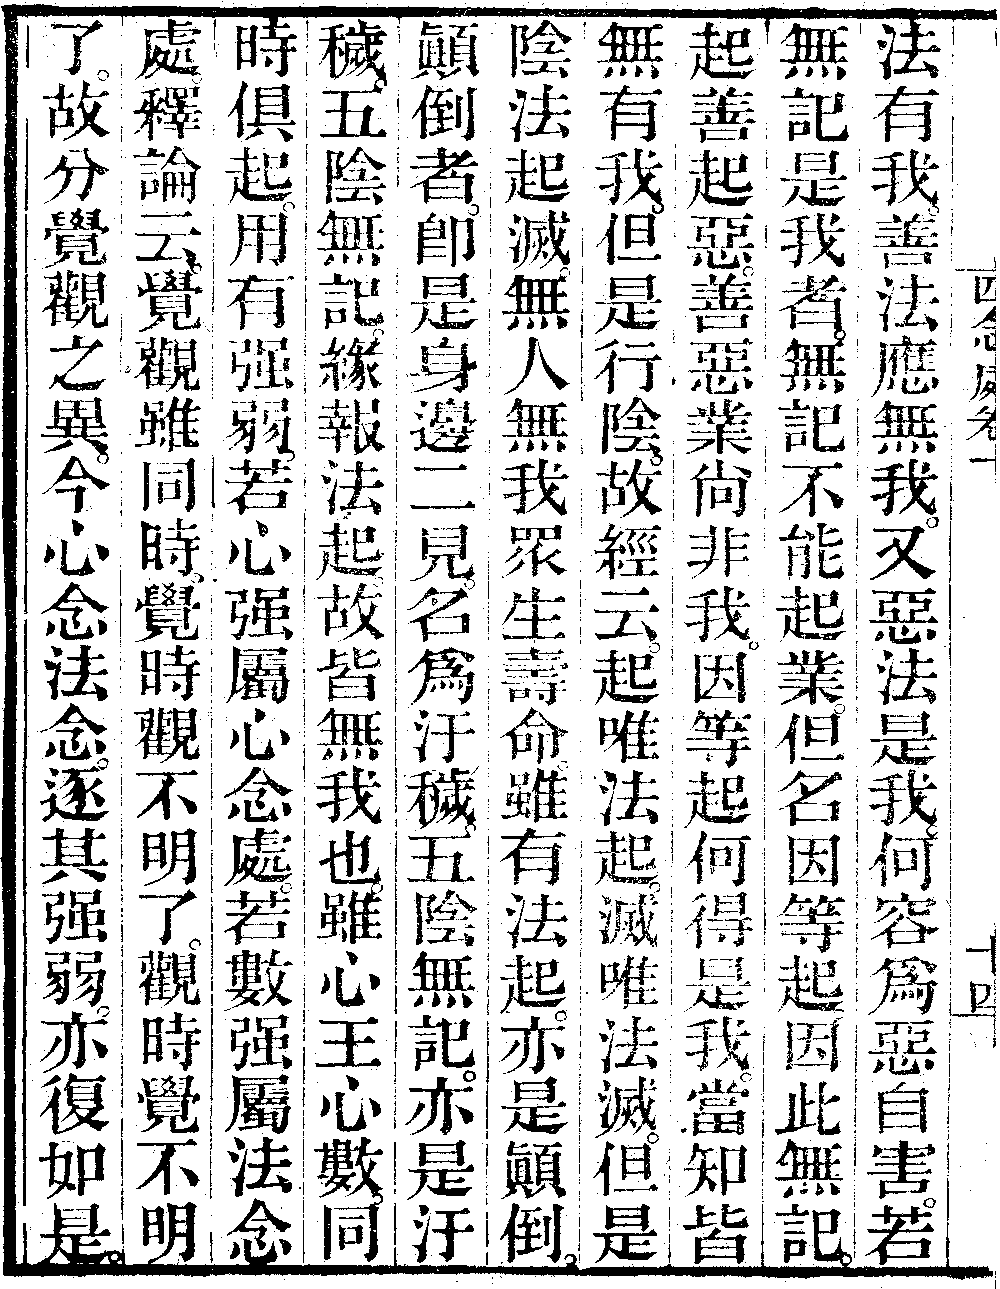 四念處卷一　十四
法有我。善法應無我。又惡法是我。何容爲惡自害。若
無記是我者。無記不能起業。但名因等起。因此無記。
起善起惡。善惡業尚非我。因等起何得是我。當知皆
無有我。但是行陰。故經云。起唯法起。滅唯法滅。但是
陰法起滅。無人無我眾生壽命。雖有法起。亦是顚倒。
顚倒者。卽是身邊二見。名爲汙穢。五陰無記。亦是汙
穢。五陰無記。緣報法起。故皆無我也。雖心王心數。同
時俱起。用有强弱。若心强屬心念處。若數强屬法念
處。釋論云。覺觀雖同時。覺時觀不明了。觀時覺不明
了。故分覺觀之異。今心念法念。逐其强弱。亦復如是。